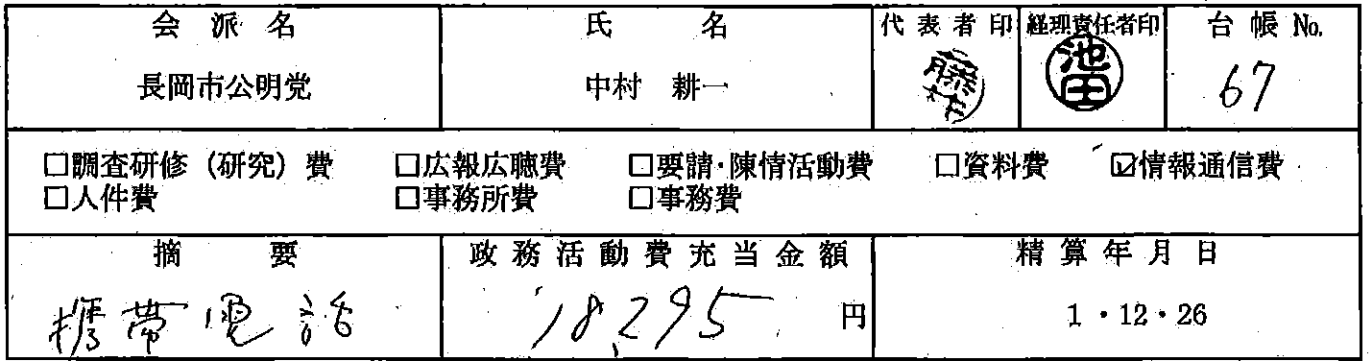 会派名 氏名 代表者印 経理責任者印 台帳No.
長岡市公明党 中村 耕一 池田 67
□調査研修（研究）費 □広報広聴費 □要請・陳情活動費 □資料費 ☑情報通信費
□人件費 □事務所費 □事務費
摘要 政務活動費充当金額 精算年月日
携帯電話 18,295 円 1・12・26